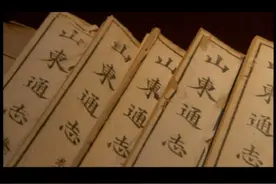 山東通志
山東通志
山東通志
山東通志